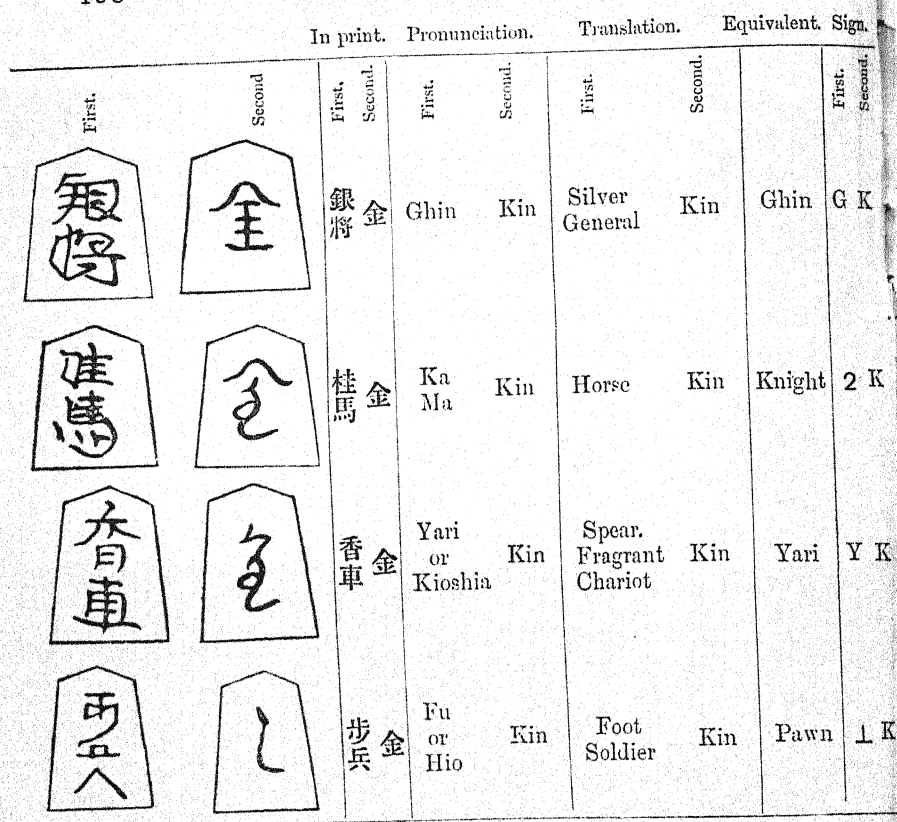 In print. Pronunciation. Translation. Equivalent. Sign.
First. Second First. Second. First. Second. First. Second. First. Second.
銀將 金 Ghin Kin Silver General Kin Ghin G K
桂馬 金 Ka Ma Kin Horse Kin Knight 2 K
香車 金 Yari or Kioshia Kin Spear. Fragrant Chariot Kin Yari Y K
步兵 金 Fu or Hio Kin Foot Soldier Kin Pawn ⊥ K